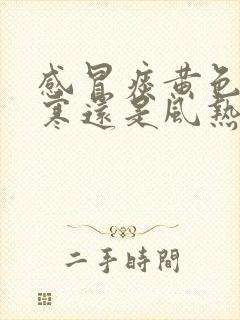 感冒痰黃色
寒還是風熱
二手時間